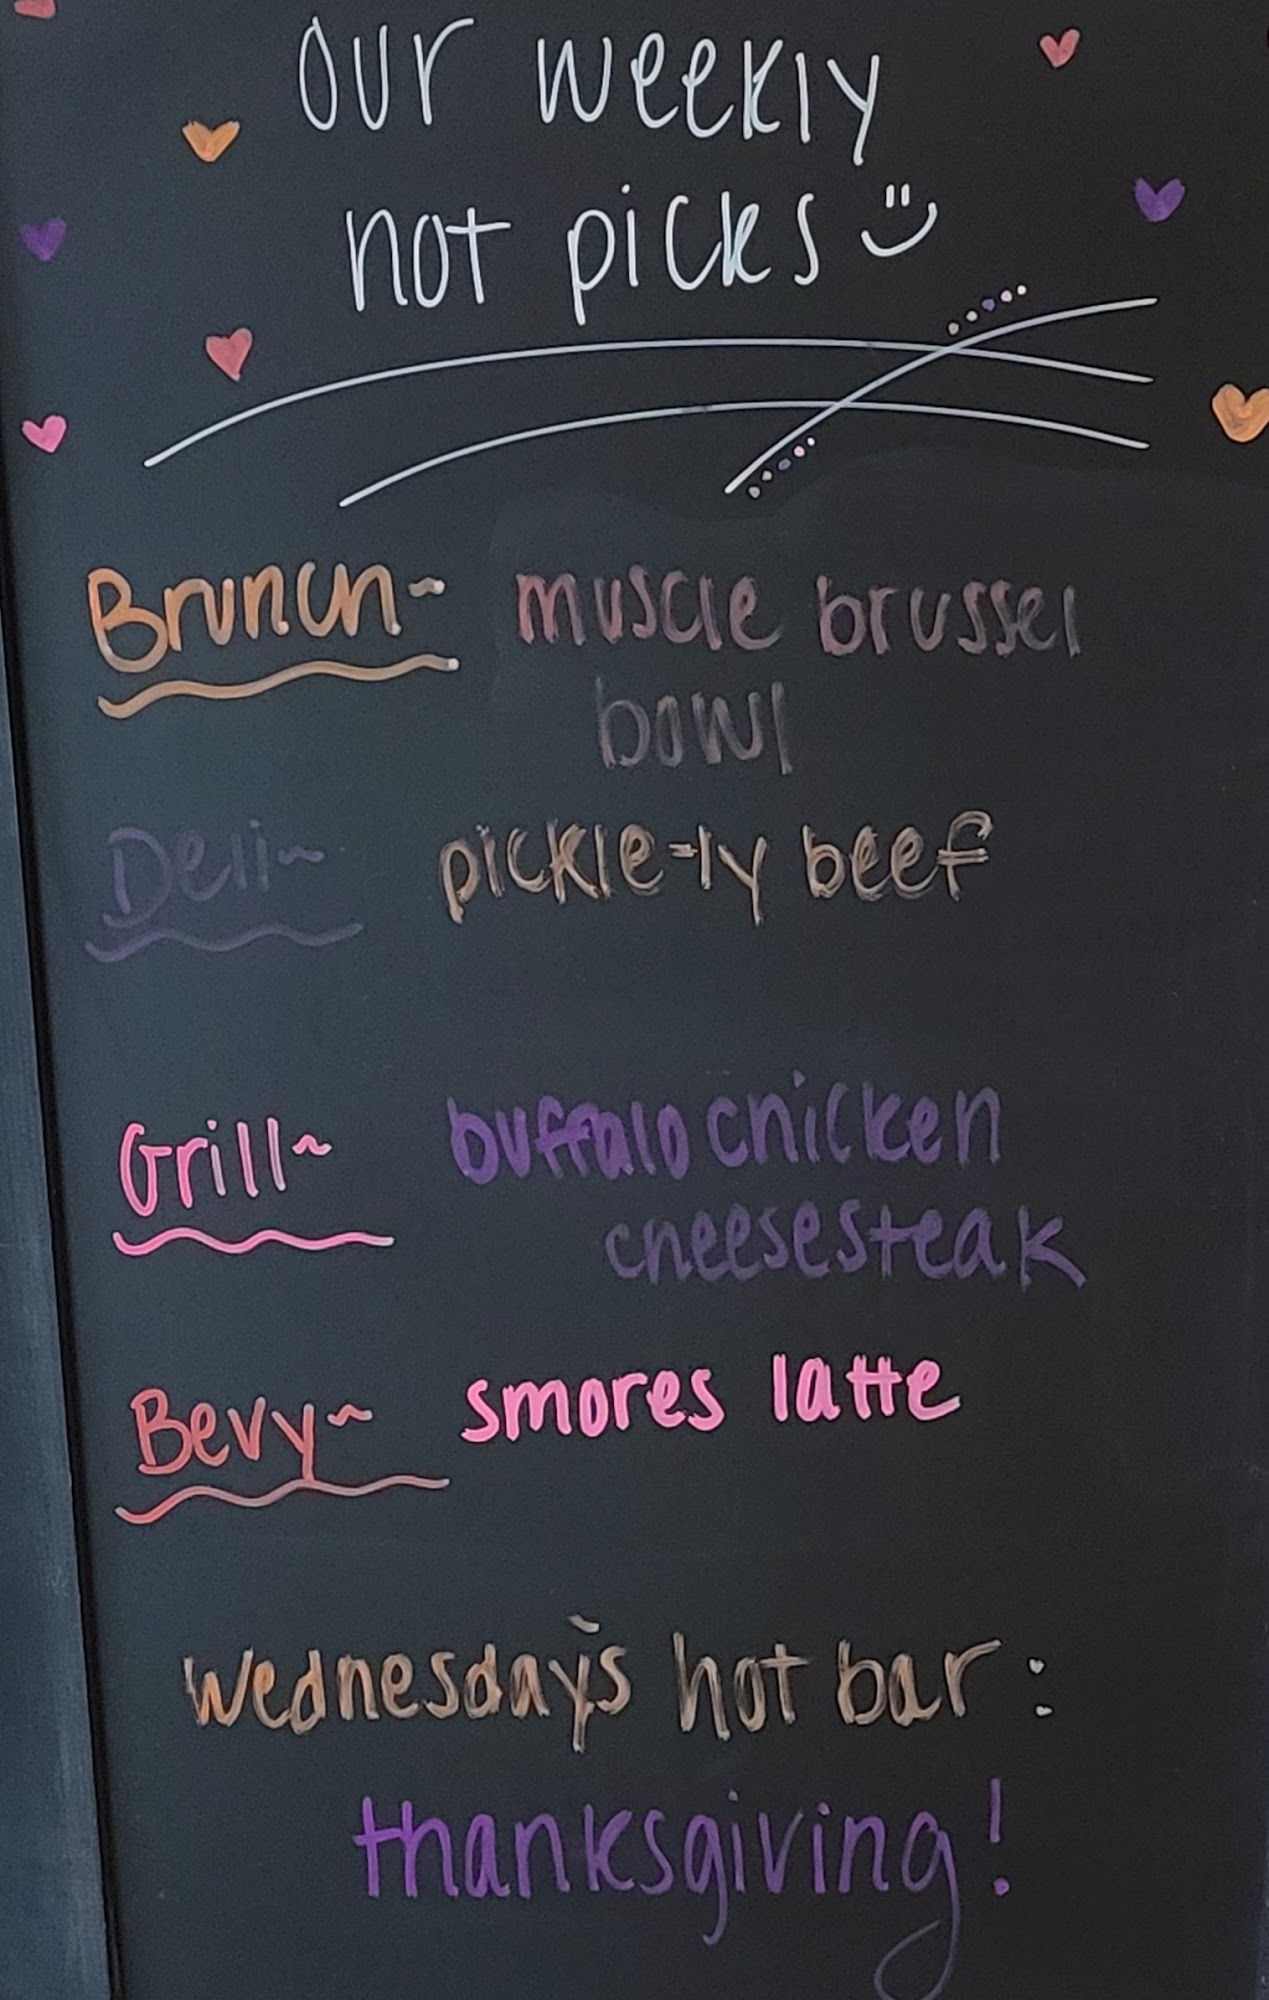 our weekly
hot picks
Brunch~ muscle brussel
bowl
Deli~ pickle-ly beef
Grill~ buffalo chicken
cheesesteak
Bevy~ smores latte
Wednesday's hot bar:
thanksgiving!